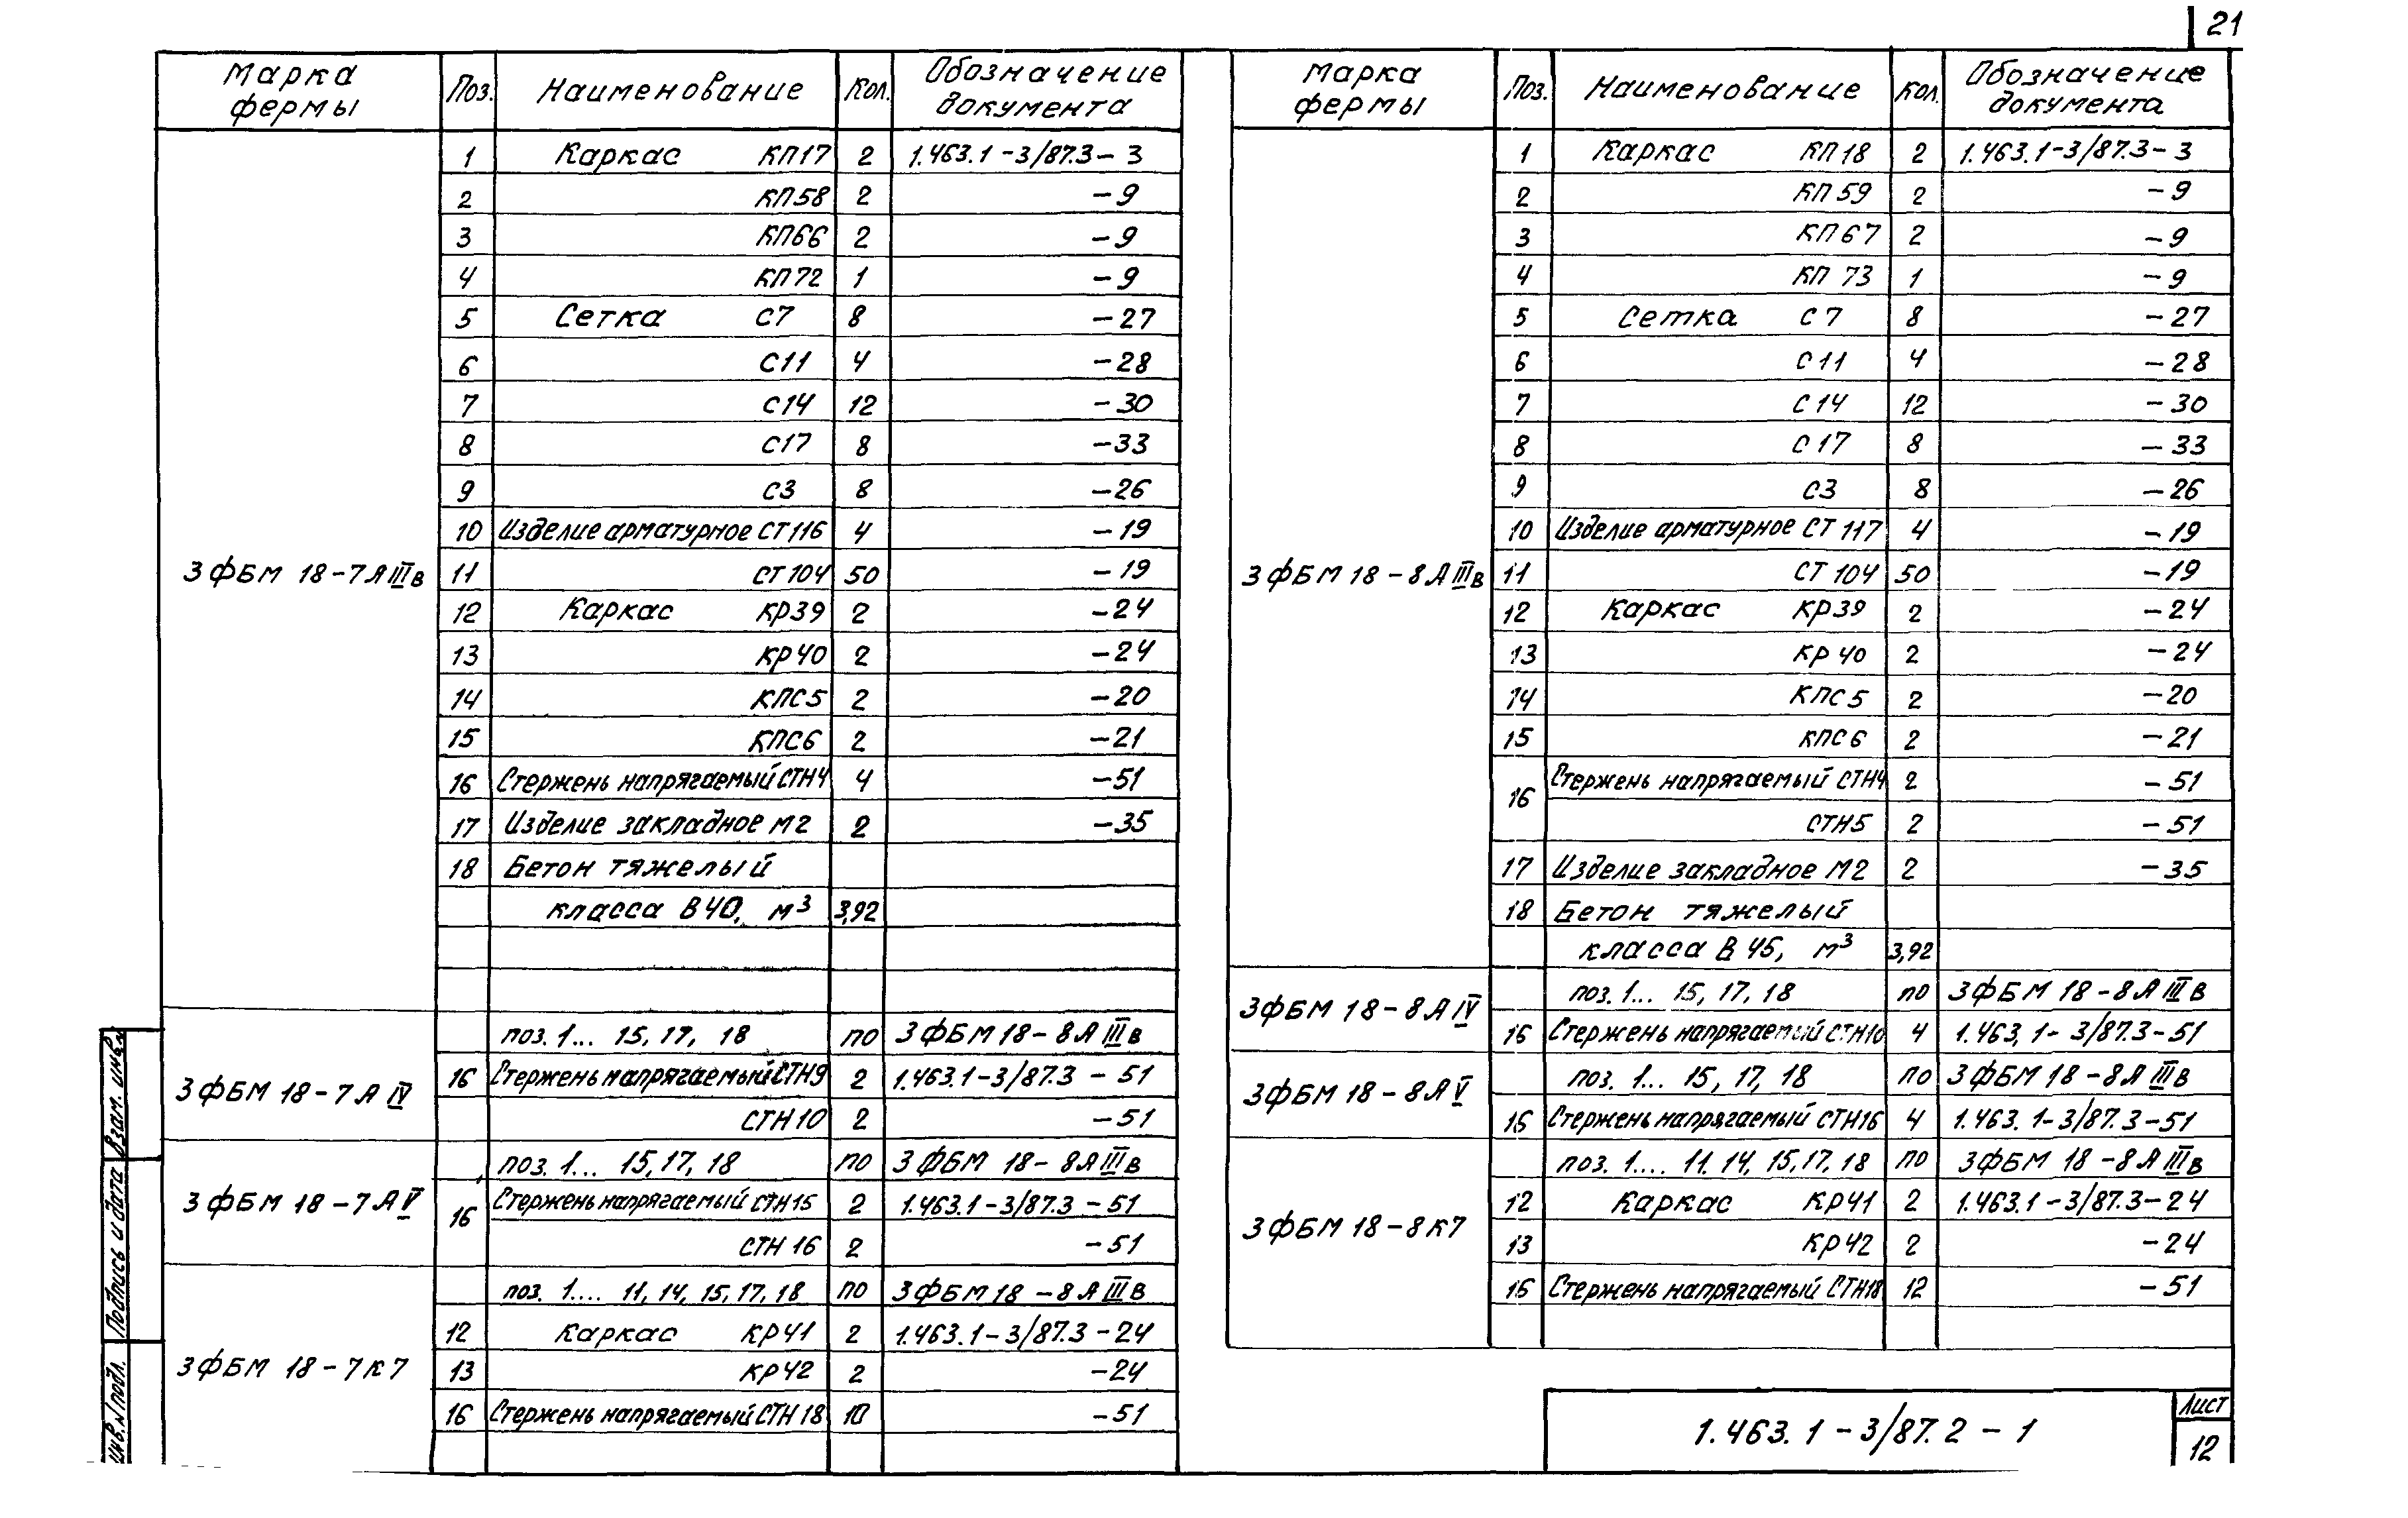 21
Марка фермы Поз. Наименование Кол. Обозначение документа
3ФБМ 18-7АIIIв
1 Каркас КП17 2 1.463.1-3/87.3-3
2 КП58 2 -9
3 КП66 2 -9
4 КП72 1 -9
5 Сетка С7 8 -27
6 С11 4 -28
7 С14 12 -30
8 С17 8 -33
9 С3 8 -26
10 Изделие арматурное СТ116 4 -19
11 СТ104 50 -19
12 Каркас КР39 2 -24
13 КР40 2 -24
14 КПС5 2 -20
15 КПС6 2 -21
16 Стержень напрягаемый СТН4 4 -51
17 Изделие закладное М2 2 -35
18 Бетон тяжелый
класса В40, м³ 3,92
3ФБМ 18-7АIV
поз. 1... 15, 17, 18 по 3ФБМ 18-8АIIIв
16 Стержень напрягаемый СТН9 2 1.463.1-3/87.3-51
СТН10 2 -51
3ФБМ 18-7АV
поз. 1... 15, 17, 18 по 3ФБМ 18-8АIIIв
16 Стержень напрягаемый СТН15 2 1.463.1-3/87.3-51
СТН16 2 -51
3ФБМ 18-7К7
поз. 1.... 11, 14, 15, 17, 18 по 3ФБМ 18-8АIIIв
12 Каркас КР41 2 1.463.1-3/87.3-24
13 КР42 2 -24
16 Стержень напрягаемый СТН18 10 -51
Марка фермы Поз. Наименование Кол. Обозначение документа
3ФБМ 18-8АIIIв
1 Каркас КП18 2 1.463.1-3/87.3-3
2 КП59 2 -9
3 КП67 2 -9
4 КП73 1 -9
5 Сетка С7 8 -27
6 С11 4 -28
7 С14 12 -30
8 С17 8 -33
9 С3 8 -26
10 Изделие арматурное СТ117 4 -19
11 СТ104 50 -19
12 Каркас КР39 2 -24
13 КР40 2 -24
14 КПС5 2 -20
15 КПС6 2 -21
16 Стержень напрягаемый СТН4 2 -51
СТН5 2 -51
17 Изделие закладное М2 2 -35
18 Бетон тяжелый
класса В45, м³ 3,92
3ФБМ 18-8АIV
поз. 1... 15, 17, 18 по 3ФБМ 18-8АIIIв
16 Стержень напрягаемый СТН10 4 1.463,1-3/87.3-51
3ФБМ 18-8АV
поз. 1... 15, 17, 18 по 3ФБМ 18-8АIIIв
16 Стержень напрягаемый СТН16 4 1.463.1-3/87.3-51
3ФБМ 18-8К7
поз. 1.... 11. 14, 15, 17, 18 по 3ФБМ 18-8АIIIв
12 Каркас КР41 2 1.463.1-3/87.3-24
13 КР42 2 -24
16 Стержень напрягаемый СТН18 12 -51
1.463.1-3/87.2-1
Лист
12
Взам. инв.№
Подпись и дата
Инв.№подл.